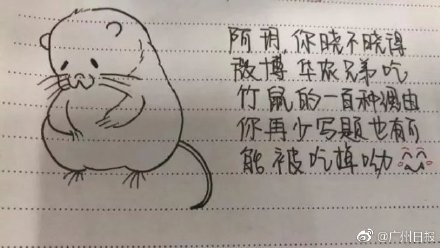 阿玥,你晓不晓得
微博华农兄弟吃
竹鼠的一百种理由
你再少写题也有可
能被吃掉呦
@广州日报